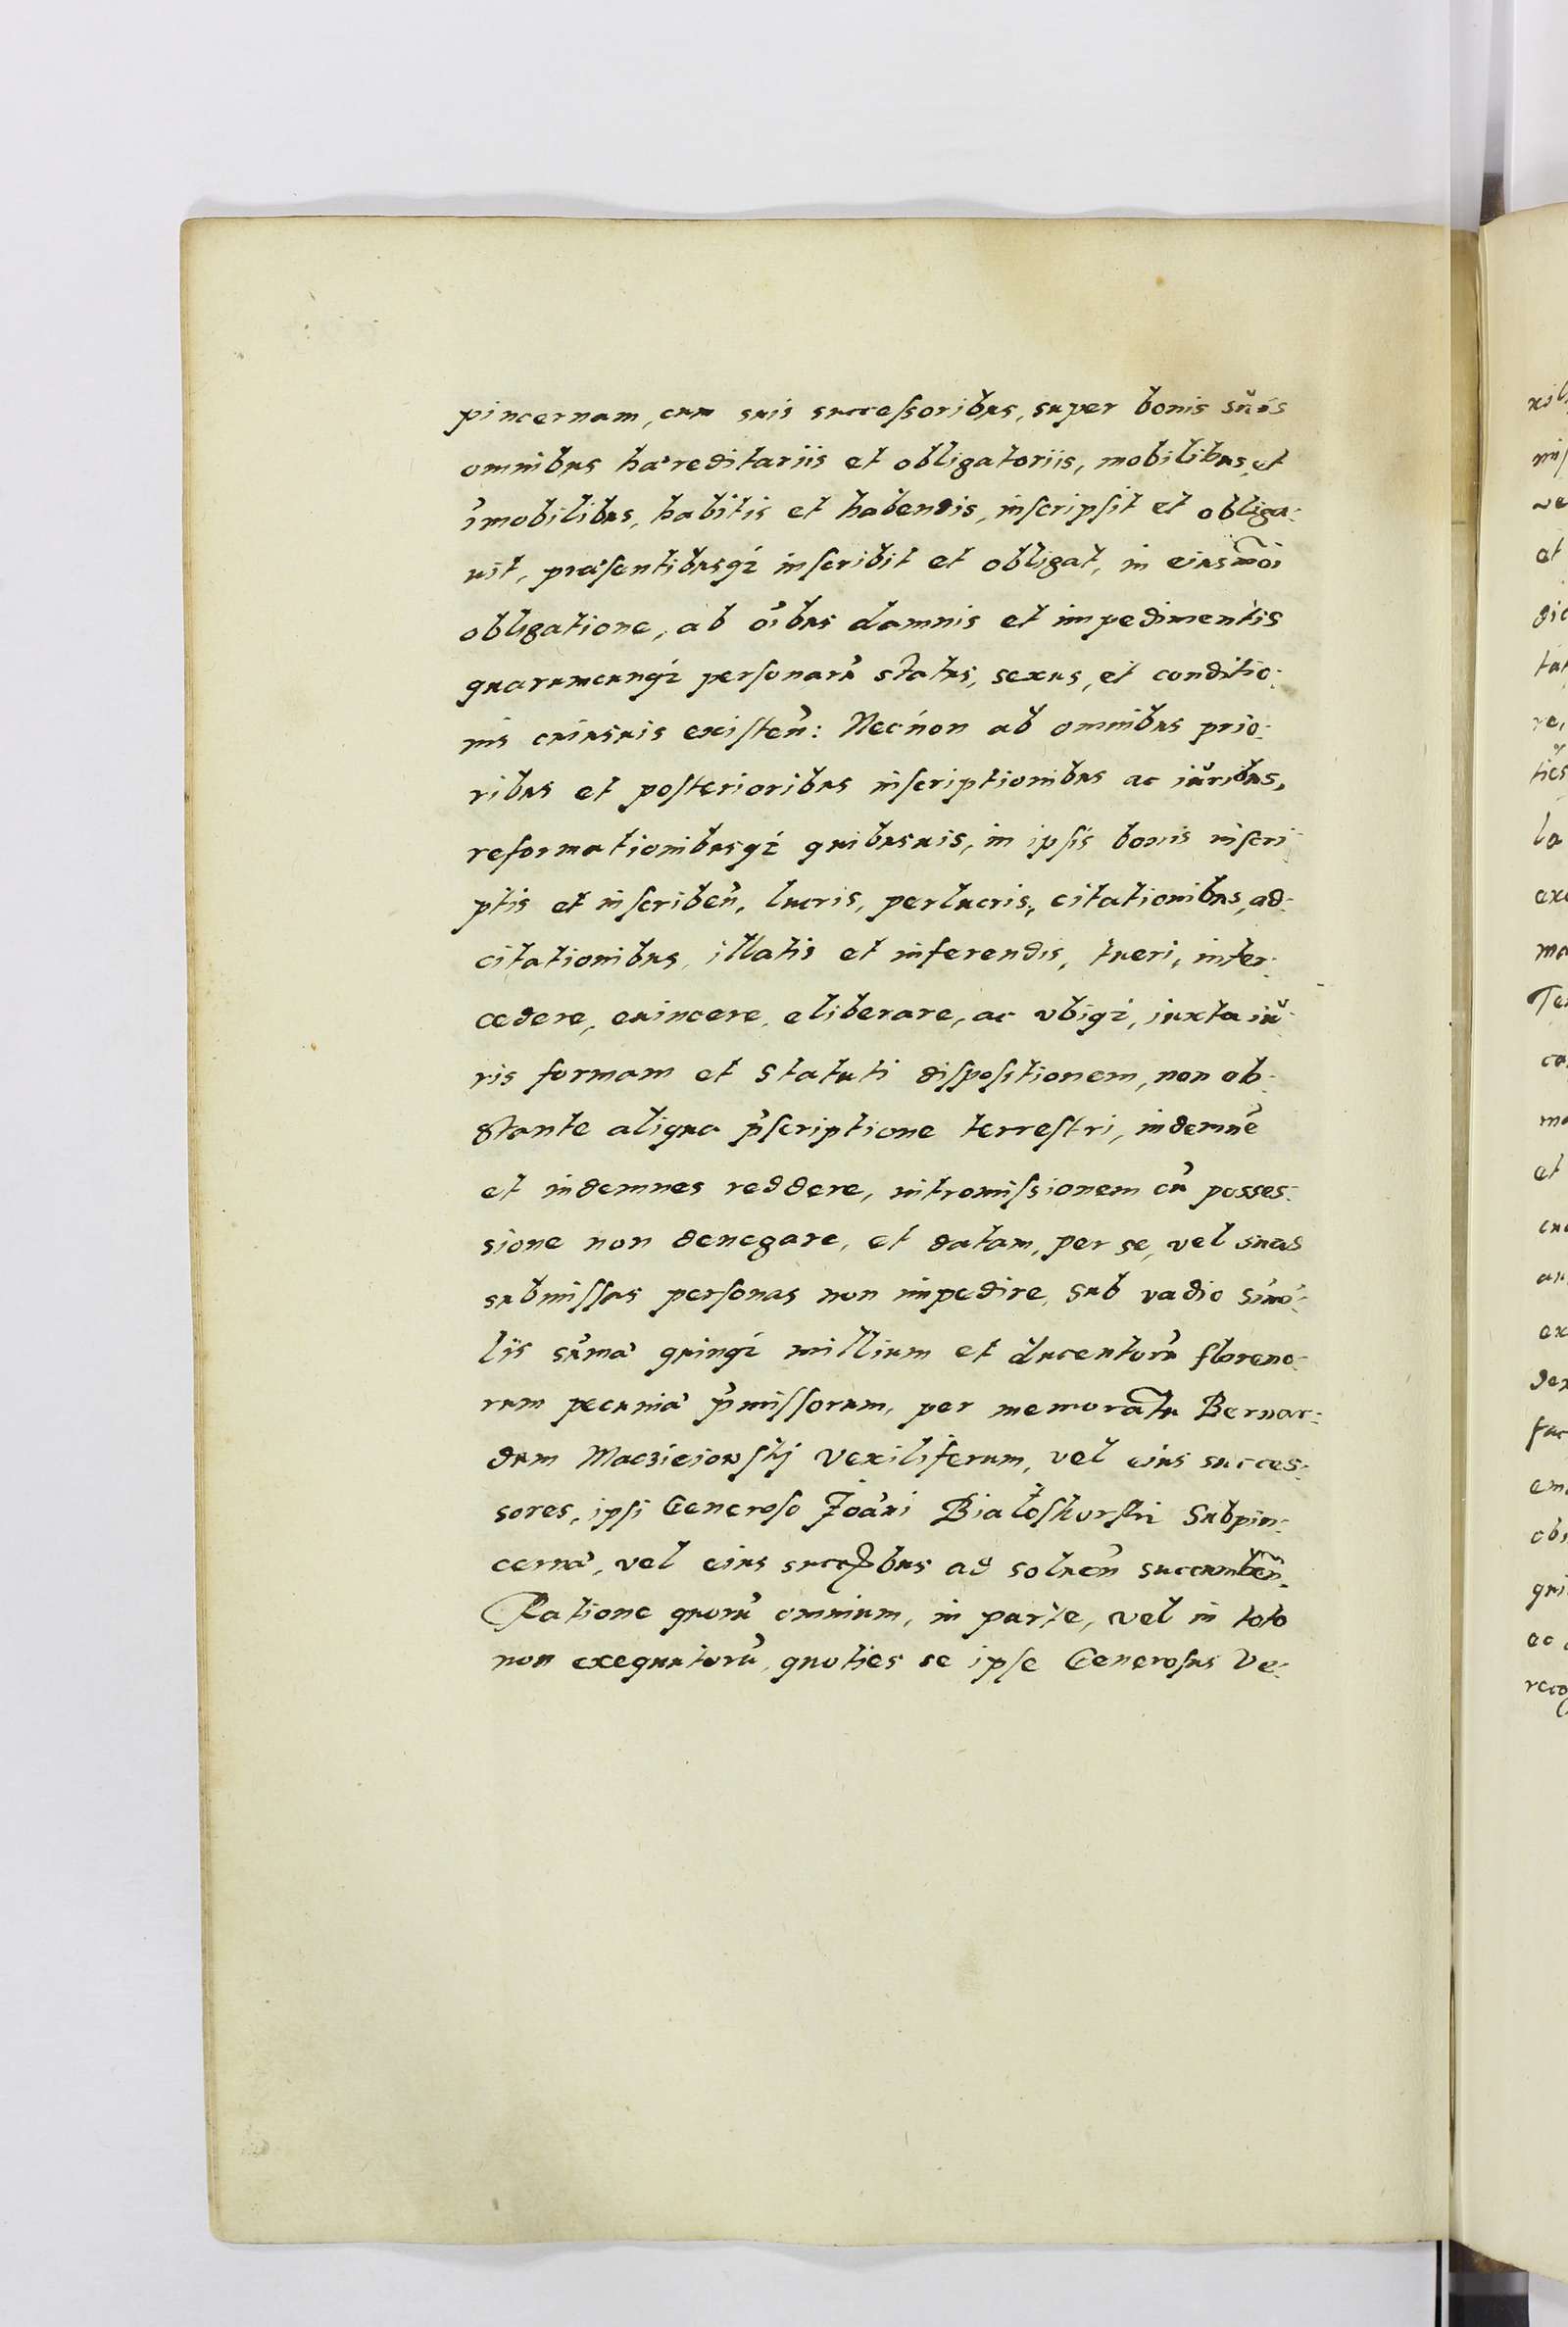 pincernam, cum suis successoribus, super bonis suis
omnibus haereditariis et obligatoriis, mobilibus, et
im̃obilibus, habitis et habendis, inscripsit et obliga:
uit, praesentibusq; inscribit et obligat, in eiusm̃oi
obligatione, ab oĩbus damnis et impedimentis
quarumcunq; personarũ status, sexus, et conditio:
nis cuiusuis existeñ: Necnon ab omnibus prio:
ribus et posterioribus inscriptionibus ac iuribus,
reformationibusq; quibusuis, in ipsis bonis inscri
ptis et inscribeñ, lucris, perlucris, citationibus, ad:
citationibus, illatis et inferendis, tueri, inter:
cedere, euincere, eliberare, ac vbiq;, iuxta iu
ris formam et statuti dispositionem, non ob:
stante aliqua p̃scriptione terrestri, indemnẽ
et indemnes reddere, intromissionem cũ posses:
sione non denegare, et datam, per se, vel suas
submissas personas non impedire, sub vadio simi:
lis sum̃ae quinq; millium et ducentorũ floreno:
rum pecuniae p̃missorum, per memoratũ Bernar:
dum Maczieiowskj Vexiliferum, vel eius succes:
sores, ipsi Generoso Joañi Białoskurski Subpin:
cernae, vel eius succ̃bus ad solueñ succumbeñ.
Ratione quorũ omnium, in parte, vel in toto
non exequutorũ, quoties se ipse Generosus Ve: